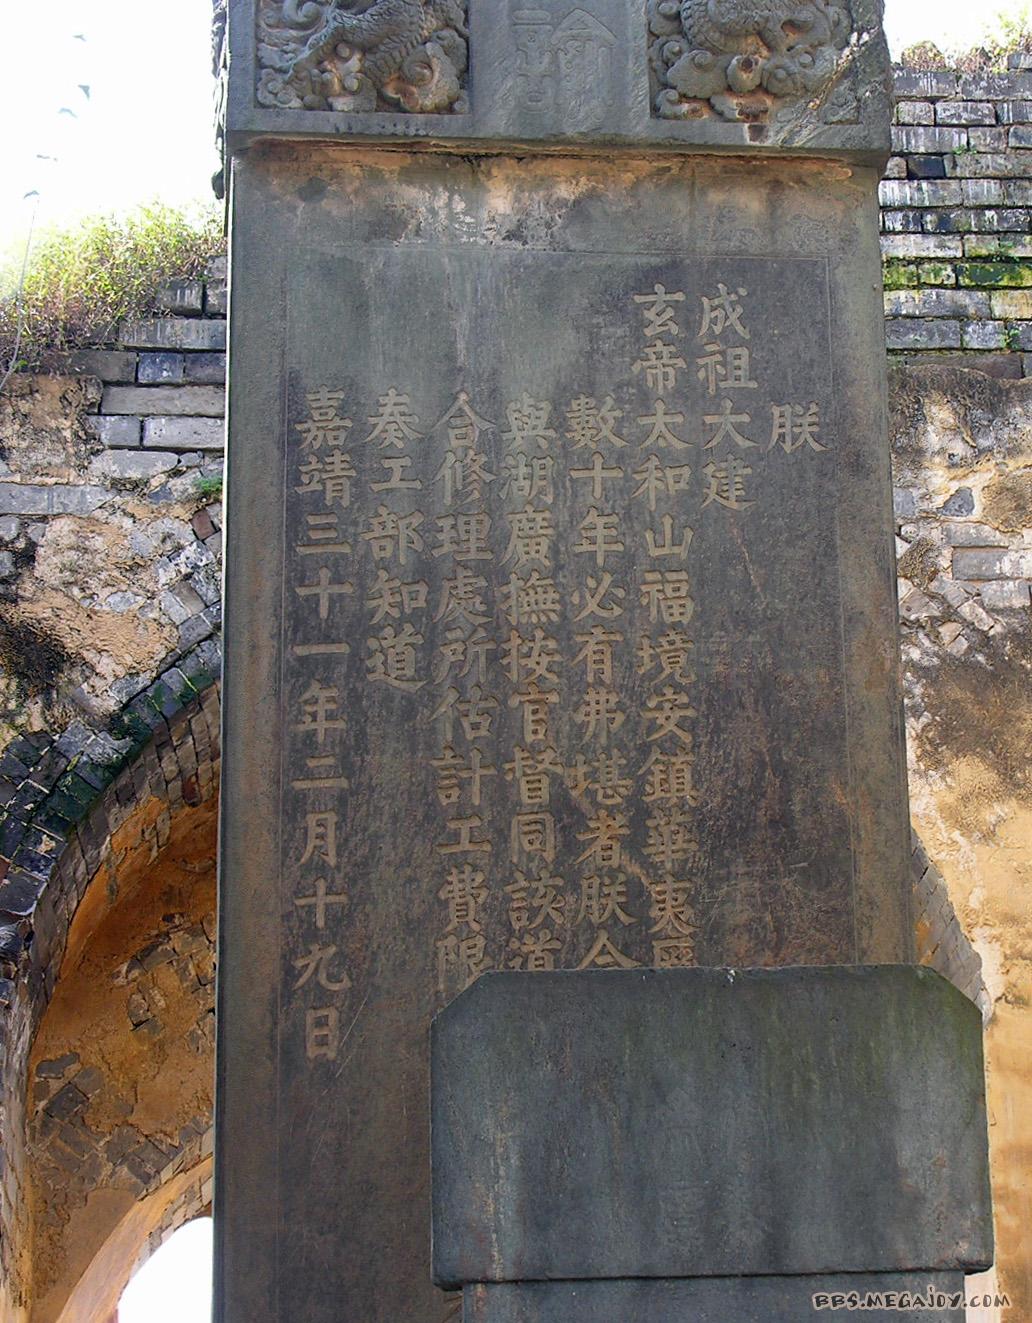 朕
成祖大建
玄帝太和山福境安鎮華夷區
數十年必有弗堪者朕
與湖廣撫按官督同該道
合修理處所估計工費限
奏工部知道
嘉靖三十一年二月十九日
BBS.MEGAJOY.COM